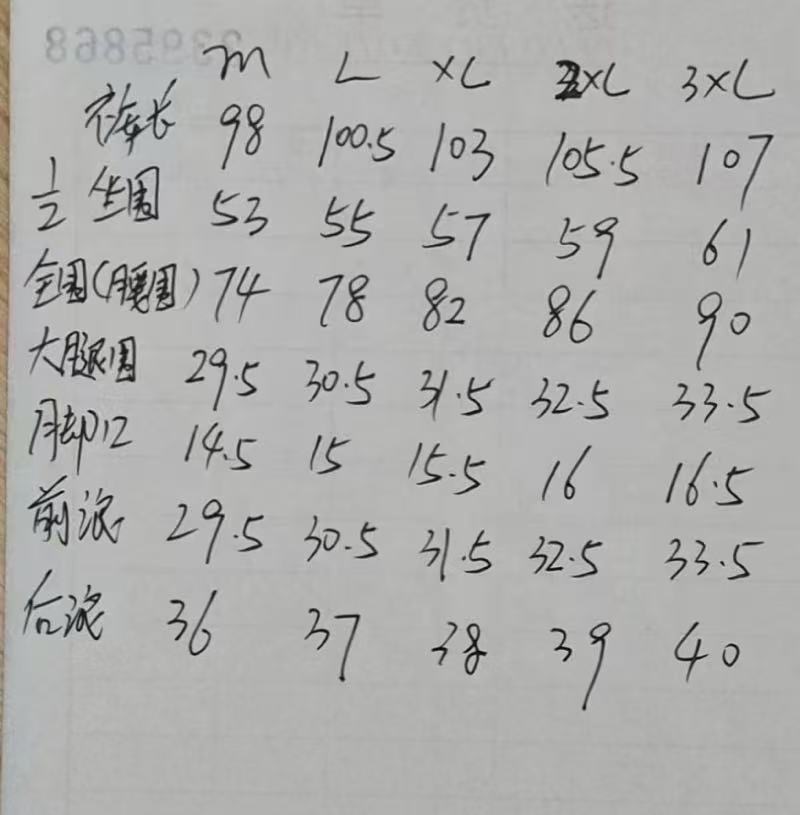 M L XL 2XL 3XL
裤长 98 100.5 103 105.5 107
1/2 坐围 53 55 57 59 61
全围(腰围) 74 78 82 86 90
大腿围 29.5 30.5 31.5 32.5 33.5
脚口 14.5 15 15.5 16 16.5
前浪 29.5 30.5 31.5 32.5 33.5
后浪 36 37 38 39 40